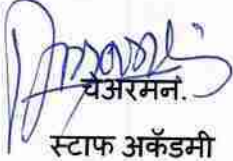 चेअरमन.
स्टाफ अकॅडमी